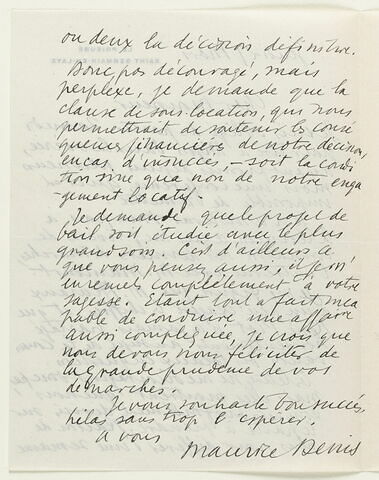 ou deux la décision définitive.
Donc, pas découragé, mais
perplexe, je demande que la
clause de sous-location, qui nous
permettrait de soutenir les consé
quences financières de notre décision,
en cas d'insuccès, - soit la condi
tion sine qua non de notre enga
gement locatif.
Je demande que le projet de
bail soit étudié avec le plus
grand soin. C'est d'ailleurs ce
que vous pensez aussi, et je m'
en remets complètement à votre
sagesse. Etant tout à fait inca
pable de conduire une affaire
aussi compliquée, je crois que
nous devons nous féliciter de
la grande prudence de vos
démarches.
Je vous souhaite bon succès,
hélas sans trop l'espérer.
à vous
Maurice Denis